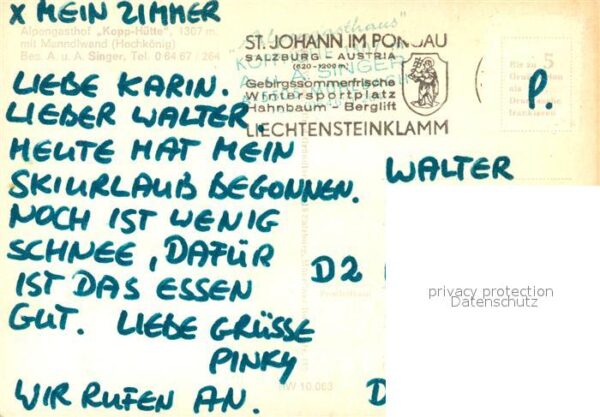 X MEIN ZIMMER
Alpengasthof "Kopp-Hütte", 1307 m,
mit Manndlwand (Hochkönig)
Bes. A. u. A. Singer. Tel. 0 64 67 / 264
ST. JOHANN IM PONGAU
SALZBURG - AUSTRIA
(620-1200m)
Gebirgssommerfrische
Wintersportplatz
Hahnbaum - Berglift
LIECHTENSTEINKLAMM
P.
LIEBE KARIN.
LIEBER WALTER.
HEUTE HAT MEIN
SKIURLAUB BEGONNEN.
NOCH IST WENIG
SCHNEE, DAFÜR
IST DAS ESSEN
GUT. LIEBE GRÜSSE
PINKY
WIR RUFEN AN.
WALTER
D2
D
privacy protection
Datenschutz